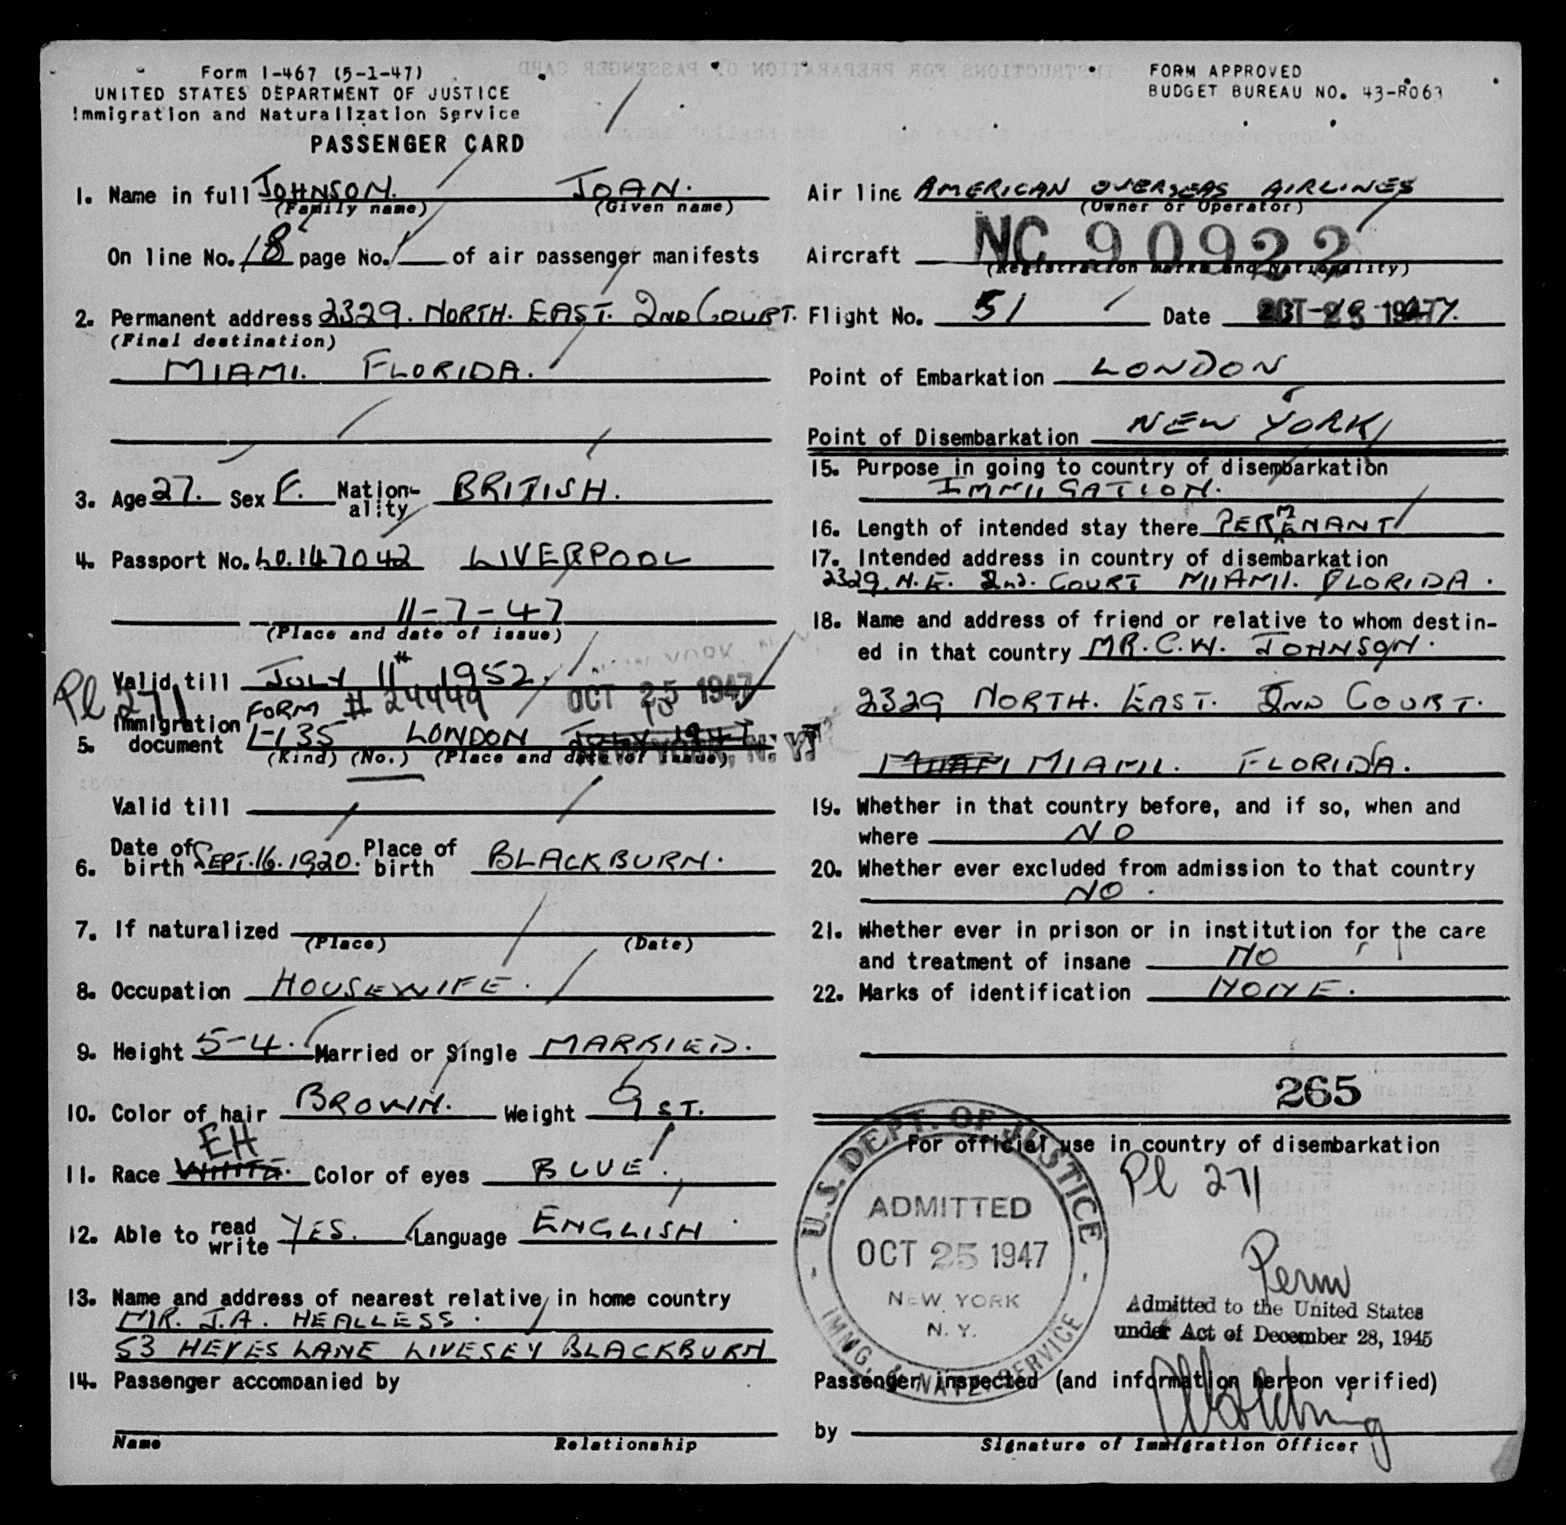 Form I-467 (5-1-47)
UNITED STATES DEPARTMENT OF JUSTICE
Immigration and Naturalization Service
PASSENGER CARD
FORM APPROVED
BUDGET BUREAU NO. 43-R063
1. Name in full JOHNSON. JOAN.
(Family name) (Given name)
On line No. 18 page No. 1 of air passenger manifests
2. Permanent address 2329. NORTH. EAST. 2ND COURT.
(Final destination)
MIAMI. FLORIDA.
3. Age 27. Sex F. Nation-ality BRITISH.
4. Passport No. LO.147042 LIVERPOOL
11-7-47
(Place and date of issue)
Valid till JULY 11th 1952.
Pl 271
FORM # 24449 OCT 25 1947
5. Immigration document I-135 LONDON JULY 1947
NEW YORK, N. Y.
(Kind) (No.) (Place and date of issue)
Valid till
6. Date of birth SEPT. 16. 1920. Place of birth BLACKBURN.
7. If naturalized
(Place) (Date)
8. Occupation HOUSEWIFE.
9. Height 5-4. Married or Single MARRIED.
10. Color of hair BROWN. Weight 9 ST.
EH
11. Race WHITE. Color of eyes BLUE.
12. Able to read write YES. Language ENGLISH.
13. Name and address of nearest relative in home country
MR. J.A. HEALLESS.
53 HEYES LANE LIVESEY BLACKBURN
14. Passenger accompanied by
Name Relationship
Air line AMERICAN OVERSEAS AIRLINES
(Owner or Operator)
Aircraft NC 90922
(Registration marks and Nationality)
Flight No. 51 Date OCT 25 1947
Point of Embarkation LONDON
Point of Disembarkation NEW YORK
15. Purpose in going to country of disembarkation
IMMIGATION.
16. Length of intended stay there PERMENANT
17. Intended address in country of disembarkation
2329. N.E. 2nd. COURT MIAMI. FLORIDA.
18. Name and address of friend or relative to whom destin-
ed in that country MR. C.W. JOHNSON.
2329 NORTH. EAST. 2ND COURT.
MIAMI MIAMI. FLORIDA.
19. Whether in that country before, and if so, when and
where NO
20. Whether ever excluded from admission to that country
NO.
21. Whether ever in prison or in institution for the care
and treatment of insane NO
22. Marks of identification NONE.
265
For official use in country of disembarkation
Pl 271
U.S. DEPT. OF JUSTICE
ADMITTED
OCT 25 1947
NEW YORK
N. Y.
IMMG. & NATZ. SERVICE
Perm
Admitted to the United States
under Act of December 28, 1945
Passenger inspected (and information hereon verified)
by
Signature of Immigration Officer